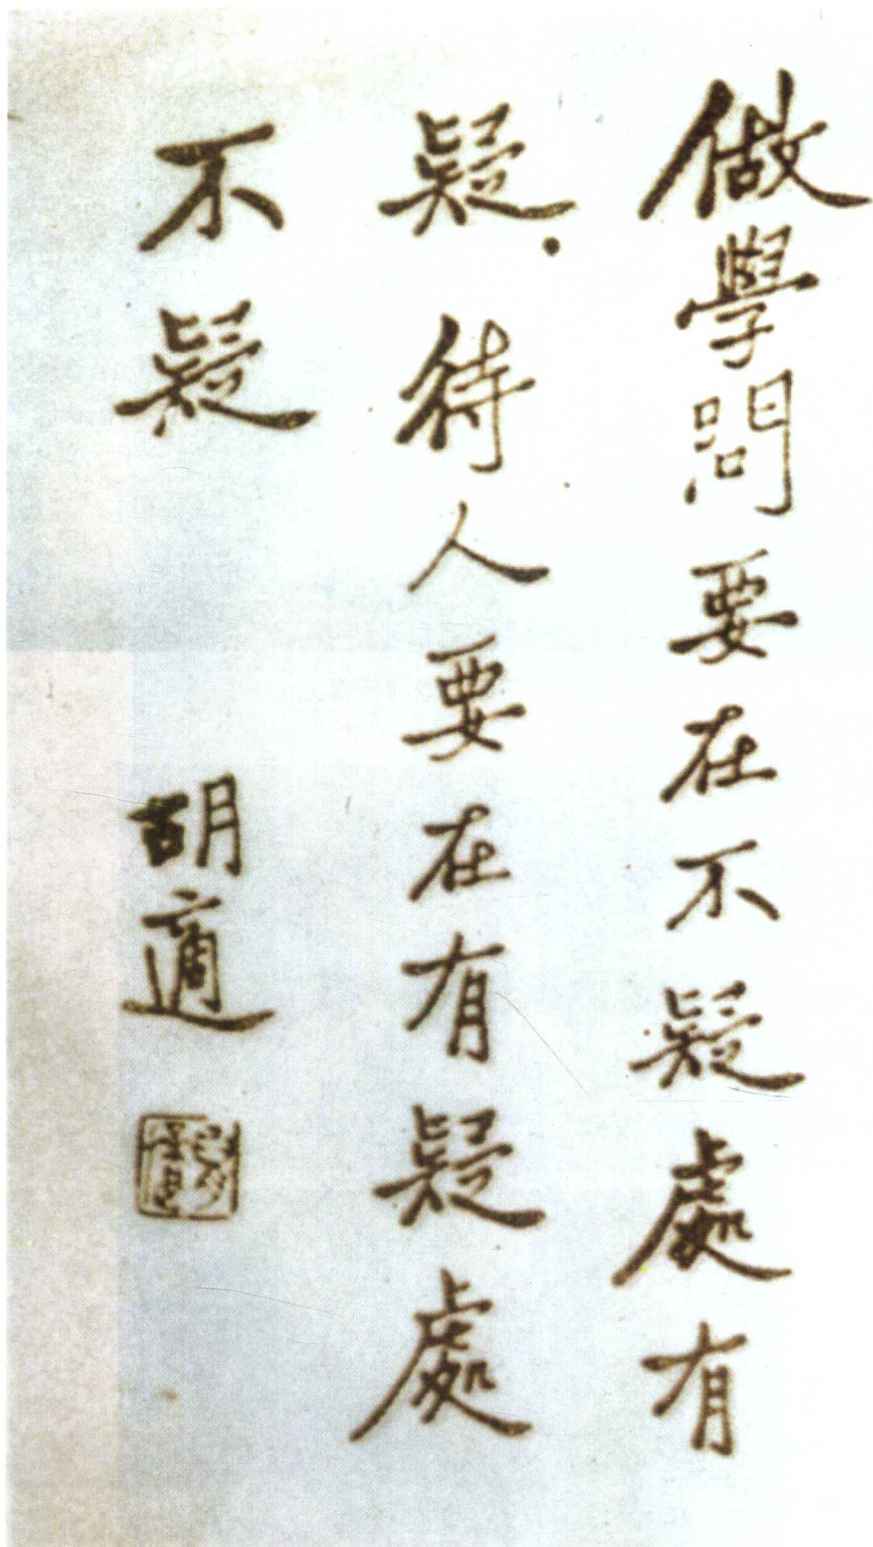 做學問要在不疑處有
疑.待人要在有疑處
不疑
胡適